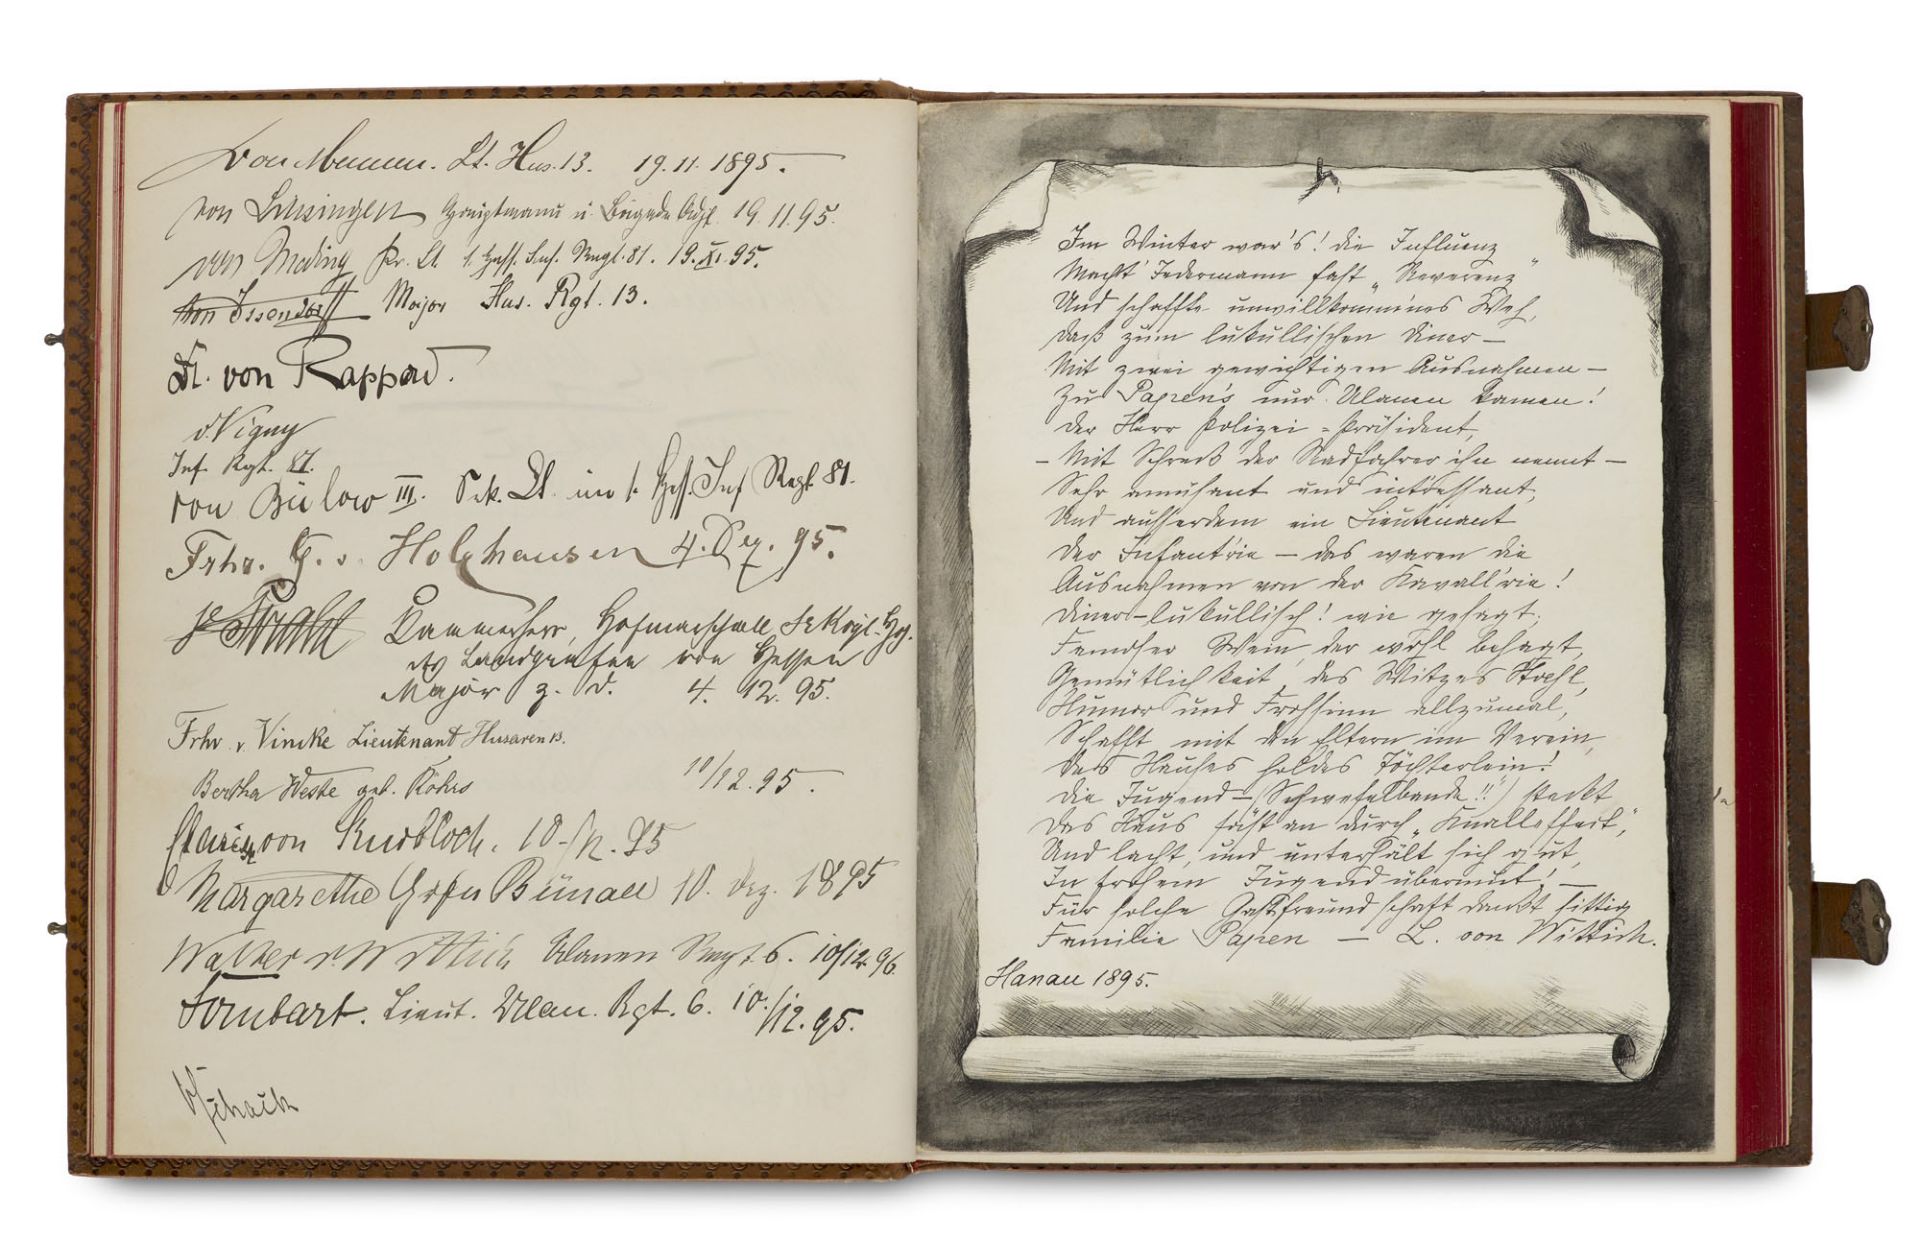 von Lt. Hus. 13. 19.11.1895.
von Linsingen Hauptmann u. Brigade Adjt. 19.11.95.
von Meding Pr. Lt. 1. Hess. Inf. Regt. 81. 19.XI.95.
von Issendorff Major Hus. Rgt. 13.
von Rappard.
v. Vigny
Inf. Rgt. 81.
von Bülow III. Sek. Lt. im 1. Hess. Inf. Regt. 81.
Frhr. G. v. Holzhausen 4. Dez. 95.
Kammerherr, Hofmarschall Sr. Kngl. Hoh.
des Landgrafen von Hessen
Major z. D. 4. 12. 95.
Frhr v. Vincke Lieutenant Husaren 13.
Bertha Weste geb. Röhrs 10/12.95.
von Knobloch. 10./12.95
Margarethe Gräfin Bünau 10. Dez. 1895
Walter v. Wittich Ulanen Regt. 6. 10/12.96.
Sombart. Lieut. Ulan. Rgt. 6. 10./12.95.
v. Schack
Im Winter war's! die Influenz
Macht' Jedermann fast „Reverenz"
Und schaffte unwillkomm'nes Weh,
Daß zum lukullischen Diner –
Mit zwei gewichtigen Ausnahmen –
Zu Papen's nur Ulanen kamen!
Der Herr Polizei=Präsident,
– Mit Schreck der Radfahrer ihn nennt –
Sehr amüsant und int'ressant,
Und ausserdem ein Lieutenant
Der Infant'rie – das waren die
Ausnahmen von der Kavall'rie!
Diner – lukullisch! wie gesagt;
Feudser Wein, der wohl behagt,
Gemütlichkeit, des Witzes Stahl,
Humor und Frohsinn allzumal,
Schafft mit den Eltern im Verein,
Des Hauses holdes Töchterlein!
Die Jugend – (Schwefelbande!!") steckt
Das Haus fast an durch „Knalleffect",
Und lacht, und unterhält sich gut,
In frohem Jugendübermut! –
Für solche Gastfreundschaft dankt sittig
Familie Papen – L. von Wittich.
Hanau 1895.